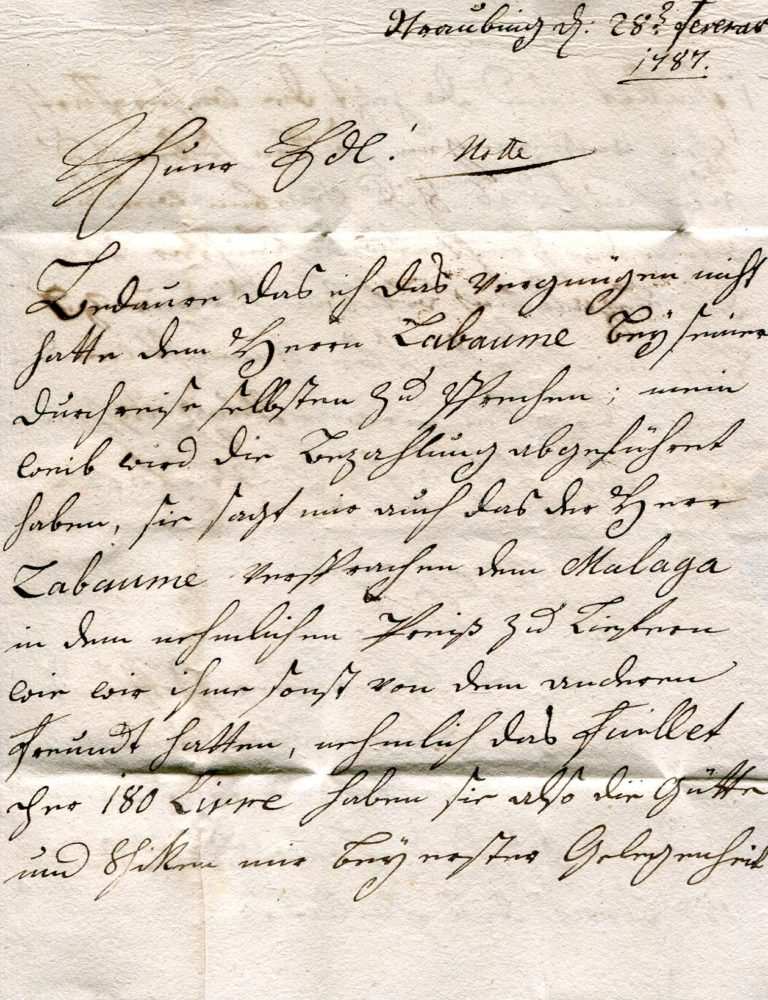 Straubing d: 28t Feverar
1787.
Edl! Notte
Bedaure das ich das vergnügen nicht
hatte dem Herrn Labaume bey seiner
durchreise selbsten zu sprechen; mein
weib wird die Bezahlung abgeführet
haben, sie sagt mir auch das der Herr
Labaume versprachen dem Malaga
in dem nehmlichen Preiß zu Liefern
wie wir ihme sonst von dem anderen
Freundt hatten, nehmlich das Fuillet
per 180 Livre haben sie also die Gütte
und Schiken mir bey erster Gelegenheit